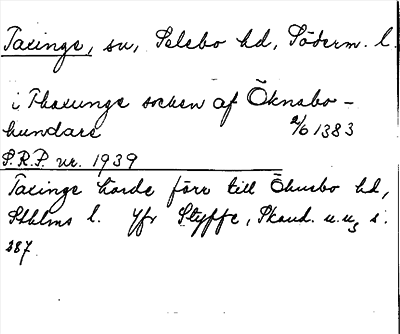 Taxinge, sn, Selebo hd, Söderm. l.
i Thaxunge socken af Öknabo-
hundare 2/6 1383
S.R.P. nr. 1939
Taxinge hörde förr till Öknebo hd,
Sthlms l. Jfr Styffe, Skand. u. u3 s.
287.